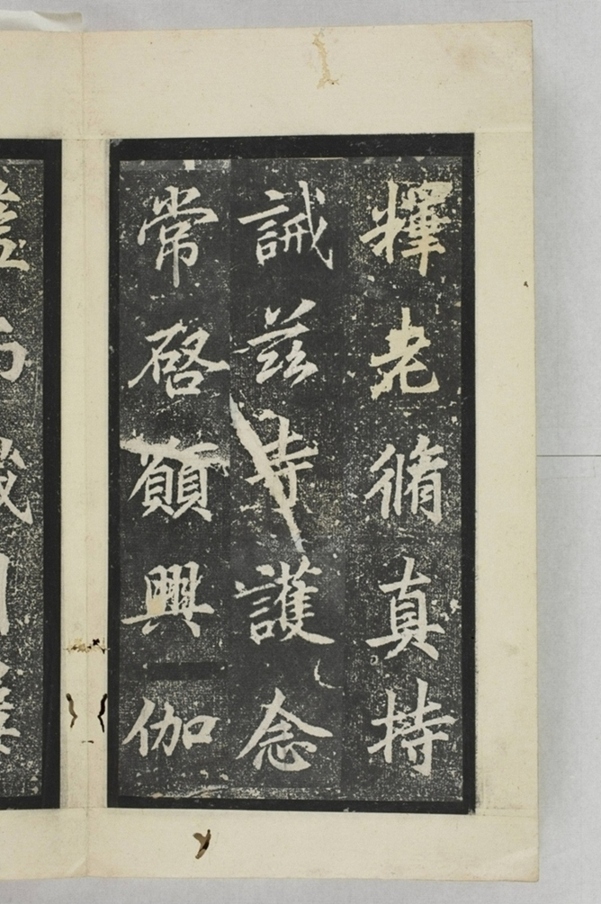 釋老脩真持
誡茲寺護念
常啓願興伽